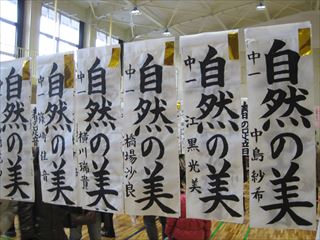 自然の美
中一 中島紗希
自然の美
中一 江黒光美
自然の美
中一 橋場沙良
自然の美
中一 横川瑞貴
自然の美
中一
自然の美